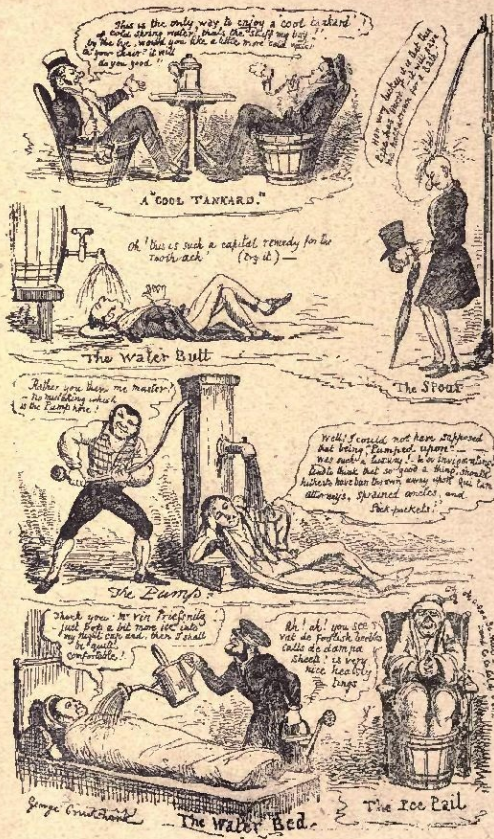 This is the only way to enjoy a cool tankard!
of cold spring water, that's the stuff my boy!!
by the bye, would you like a little more cold water
in your chair? it will
do you good!!
A "COOL TANKARD."
The Spout
Oh! this is such a capital remedy for the
Tooth-ach! (try it) —
The Water Butt
Rather you then me master!
– no mistaking which
is the Pump here!
The Pump.
Well! I could not have supposed
that being "Pumped upon"
was such a luxury! & so invigorating
to think that so good a thing should
hitherto have been thrown away upon Qui tam
attorneys, Sprained ancles, and
Pick-pockets!
Thank you Mr Von Priesnitz
just pop a bit more ice into
my night cap and then I shall
be quite
comfortable!
Ah! ah! you see!
vat de foolish
calls de damp
Sheets! is very
nice healty
tings
George Cruikshank
The Water Bed.
The Ice Pail